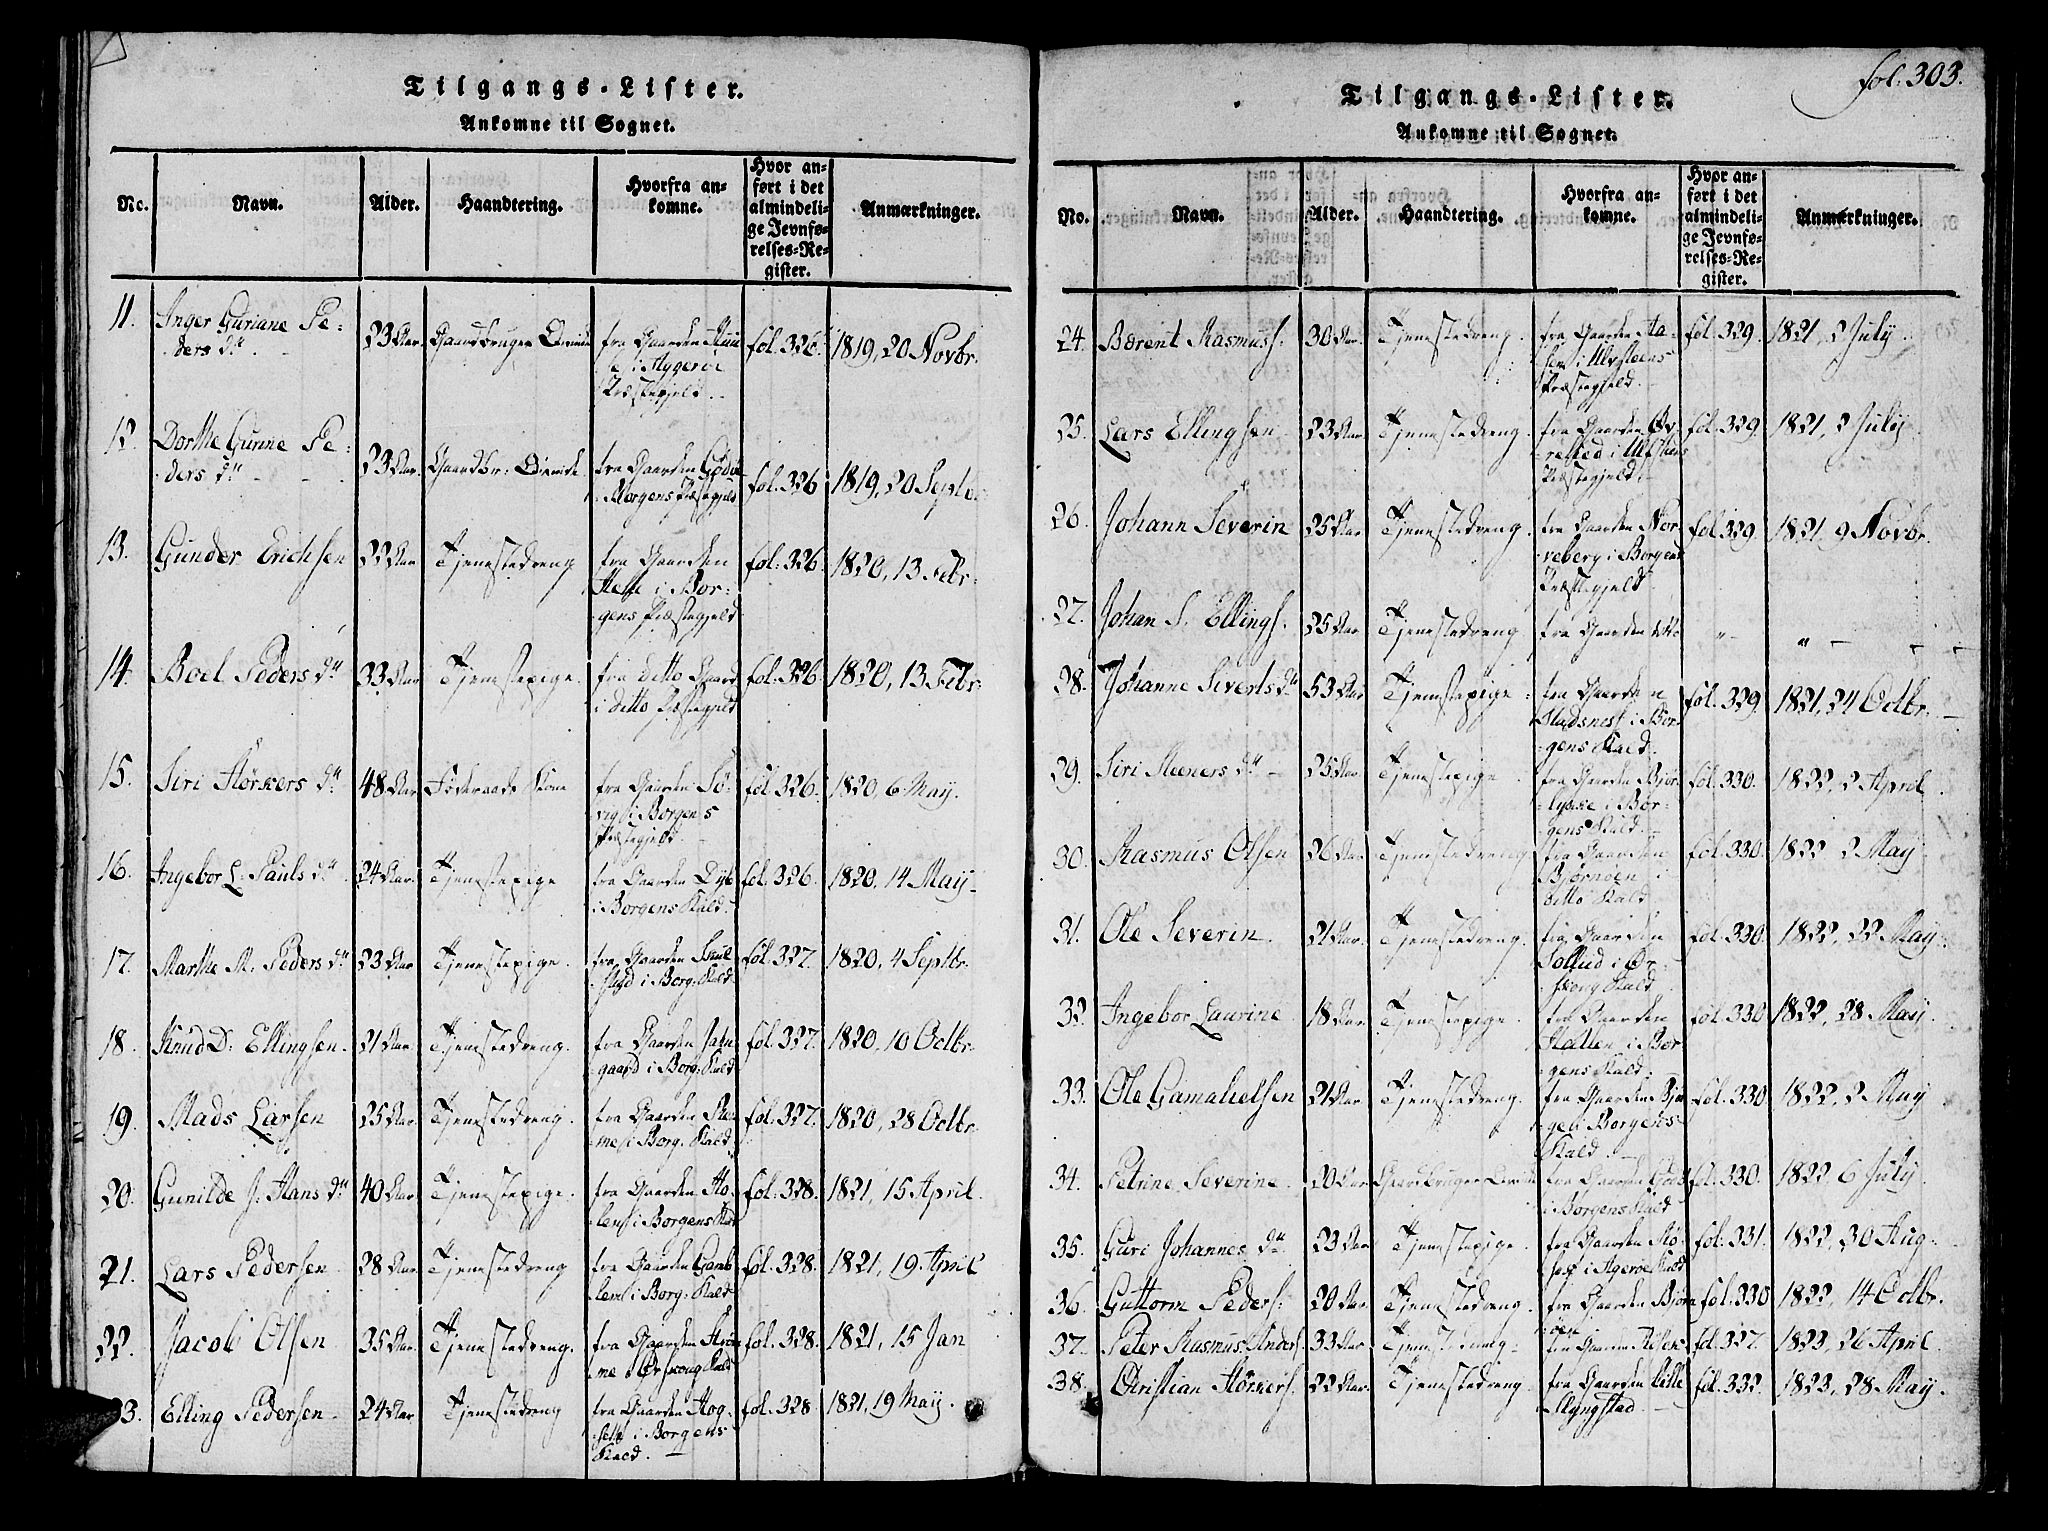 fol. 303.
Tilgangs-Lister.
Ankomne til Sognet.
No. Navn. Alder. Haandtering. Hvorfra ankomne. Hvor anført i det almindelige Jevnførelses-Register. Anmærkninger.
11. Inger Guriane Pe-
ders dtr 23 Aar. fra Gaarden
i Aggeröe
Præstegjeld. fol. 326. 1819, 20 Novbr.
12. Dorthe Gurine Pe-
ders dtr 23 Aar. Gaardbr: fra Gaarden
Borgens Præstegjeld fol. 326 1819, 20 Septbr.
13. Gunder Erichsen 22 Aar Tjenestedreng fra Gaarden
Helle i Bor-
gens Præstegjeld fol. 326. 1820, 13 Febr.
14. Boel Peders dtr 33 Aar Tjenestepige. fra ditto Gaard
i ditto Præstegjeld fol. 326 1820, 13 Febr.
15. Siri Størkers dtr 48 Aar Föderaads Kone fra Gaarden Sö-
vig i Borgens
Præstegjeld. fol. 326. 1820, 6 May.
16. Ingebor L. Pauls dtr 24 Aar. Tjenestepige fra Gaarden
i Borgens Kald. fol. 326. 1820, 14 May.
17. Marthe M. Peders dtr 23 Aar Tjenestepige. fra Gaarden
i Borg. Kald fol. 327. 1820, 4 Septbr.
18. Knud D. Ellingsen. 21 Aar. Tjenestedreng. fra Gaarden
gaard i Borg. Kald fol. 327. 1820, 10 Octbr.
19. Mads Larsen 25 Aar. Tjenestedreng. fra Gaarden
i Borg. Kald. fol. 327. 1820, 28 Octbr.
20. Gunilde J. Hans dtr 40 Aar. Tjenestepige. fra Gaarden Ho-
lem i Borgens Kald fol. 328. 1821, 15 April.
21. Lars Pedersen 28 Aar. Tjenestedreng fra Gaarden Gamb
lem i Borg. Kald fol. 328. 1821, 19 April
22. Jacob Olsen 35 Aar. Tjenestedreng. fra Gaarden
i Ørskoug Kald fol. 328. 1821, 15 Jan
23. Elling Pedersen 24 Aar Tjenestedreng fra Gaarden Hog-
i Borgens
Kald. fol. 328 1821, 19 May.
Tilgangs-Lister.
Ankomne til Sognet.
No. Navn. Alder. Haandtering. Hvorfra ankomne. Hvor anført i det almindelige Jevnførelses-Register. Anmærkninger.
24. Bærent Rasmuss. 30 Aar. Tjenestedreng. fra Gaarden Aa-
i Ulvsteens
Præstegjeld. fol. 329. 1821, 2 July
25. Lars Ellingsen 23 Aar Tjenestedreng. fra Gaarden
i Ulfsteens
Præstegjeld. fol. 329. 1821, 2 July
26. Johann Severin 25 Aar Tjenestedreng. fra Gaarden Nor-
veberg i Borgens
Præstegjeld fol. 329 1821, 9 Novbr.
27. Johan S. Ellings. 25 Aar Tjenestedreng fra Gaarden ditto " "
28. Johanne Siverts dtr 53 Aar Tjenestepige. fra Gaarden
i Bor-
gens Kald. fol. 329. 1821, 24 Octbr.
29. Siri Steeners dtr 25 Aar Tjenestepige fra Gaarden Bjør-
lykke i Bor-
gens Kald. fol. 330. 1822, 2 April.
30. Rasmus Olsen 26 Aar Tjenestedreng fra Gaarden
Bjørnöen i
ditto Kald fol. 330. 1822 2 May
31. Ole Severin. 21 Aar. Tjenestedreng. fra Gaarden
Sollid i Ør-
skoug Kald. fol. 330. 1822, 22 May.
32. Ingebor Laurine. 18 Aar Tjenestepige. fra Gaarden
Hallen i Bor-
gens Kald. fol. 330 1822, 28 May.
33. Ole Gamalielsen 21 Aar. Tjenestedreng. fra Gaarden
i Borgens
Kald. fol. 330 1822, 2 May
34. Petrine Severine. 20 Aar fra Gaarden
i Borgens Kald fol. 330. 1822 6 July
35. Guri Johannes dtr 23 Aar Tjenestepige. fra Gaarden
i Ageröe Kald fol. 331. 1822, 30 Aug.
36. Guttorm Peders. 20 Aar Tjenestedreng. fra Gaarden Bjørn-
öen fol. 330 1822, 14 Octbr.
37. Peter Rasmus Anders. 33 Aar Tjenestedreng fra Gaarden fol. 327. 1823, 26 April
38. Christian Størkers. 22 Aar. Tjenestedreng. fra Gaarden Lille
Slyngstad fol. 332. 1823, 28 May.